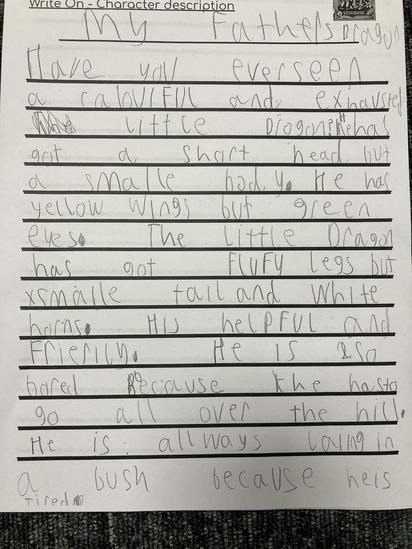 Write On - Character description
My Fathers Dragon
Have you everseen
a calouifull and exhausted
little Dragon? He has
got a short head but
a smalle body. He has
yellow wings but green
eyes. The little Dragon
has got flufy legs but
xsmalle tail and White
horns. His helpFUl and
Frienly. He is also
bored Because the hasto
go all over the hill.
He is allways laing in
a bush because heis
Tired